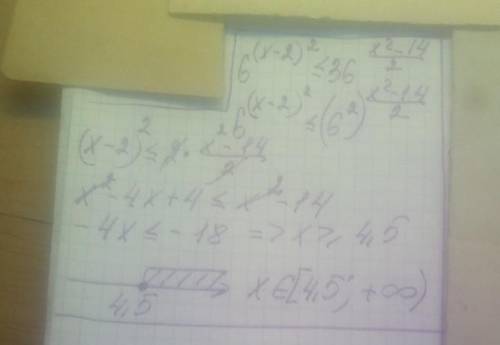 6^(x-2)^2 ≤ 36^(x²-14)/2
6^(x-2)^2 ≤ (6²)^(x²-14)/2
(x-2)² ≤ 2 · (x²-14)/2
x² - 4x + 4 ≤ x² - 14
-4x ≤ -18 => x ≥ 4,5
4,5 x ∈ [4,5; +∞)